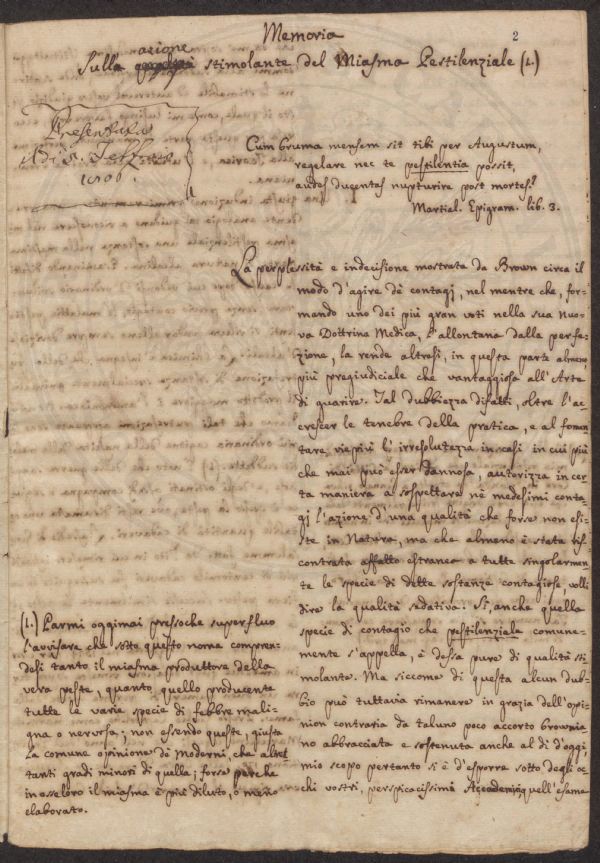 2
Memoria
azione
Sulla stimolante del Miasma Pestilenziale (1.)
Presentata
1806.
Cum bruma mensem sit tibi per Augustum,
regelare nec te pestilentia possit,
audes ducentas nupturire post mortes?
Martial. Epigram. lib. 3.
La perplessità e indecisione mostrata da Brown circa il
modo d'agire dè contagj, nel mentre che, for-
mando uno dei più gran voti nella sua nuo-
va Dottrina Medica, l'allontana dalla perfe-
zione, la rende altresì, in questa parte almeno,
più pregiudiciale che vantaggiosa all'Arte
di guarire. Tal dubbiezza difatti, oltre l'ac-
crescer le tenebre della pratica, e al fomen
tare viepiù l'irresolutezza in casi in cui più
che mai può esser dannosa, autorizza in cer
ta maniera a sospettare nè medesimi conta
gj l'azione d'una qualità che forse non esi-
ste in Natura, ma che almeno è stata ris-
contrata affatto estranea a tutte singolarmen
te le specie di dette sostanze contagiose, volli
dire la qualità sedativa. Si, anche quella
specie di contagio che pestilenziale comune-
mente s'appella, è dessa pure di qualità sti
molante. Ma siccome di questa alcun dub-
bio può tuttavia rimanere in grazia dell'opi-
nion contraria da taluno poco accorto brownia
no abbracciata e sostenuta anche al dì d'oggi,
mio scopo pertanto si è d'esporre sotto degli oc
chi vostri, perspicacissimi Accademici quell'esame
(1.) Parmi oggimai pressoche superfluo
l'avvisare che sotto questo nome compren-
desi tanto il miasma produttore della
vera peste, quanto quello producente
tutte le varie specie di febbre mali-
gna o nervosa; non essendo queste, giusta
la comune opinione dè moderni, che altret
tanti gradi minori di quella; forse perche
in esse loro il miasma è più diluto, o meno
elaborato.